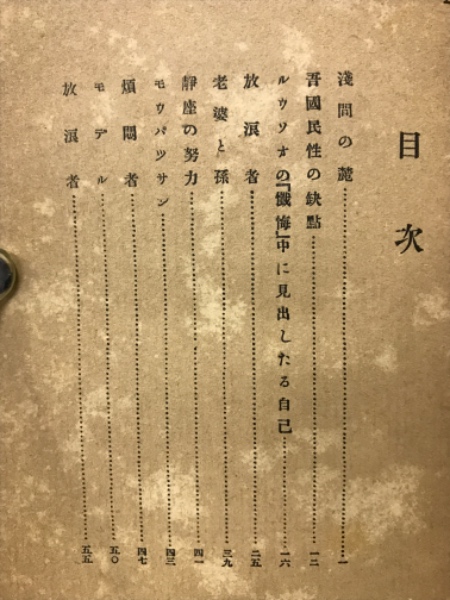 目次
淺間の麓……一
吾國民性の缺點……一二
ルウソオの『懺悔』中に見出したる自己……一六
放浪者……二五
老婆と孫……三九
靜座の努力……四一
モウパツサン……四三
煩悶者……四七
モデル……五〇
放浪者……五五